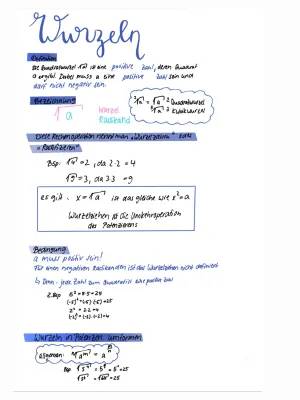 Wurzeln
Definition
Die Quadratwurzel √a ist eine positive Zahl, deren Quadrat
a ergibt. Dabei muss a eine positive Zahl sein und
darf nicht negativ sein.
Bezeichnung
√a
Wurzel
Radikand
²√a = √a → Quadratwurzel
³√a → Kubikwurzel
Diese Rechenoperation nennt man „Wurzelziehen“ oder
„Radizieren“
Bsp: √4 = 2, da 2·2 = 4
√9 = 3, da 3·3 = 9
es gilt: x = √a ist das gleiche wie x² = a
Wurzelziehen ist die Umkehroperation
des Potenzierens
Bedingung
a muss positiv sein!
Für einen negativen Radikanden ist das Wurzelziehen nicht definiert
↳ Denn: jede Zahl zum Quadrat ist eine positive Zahl
z.Bsp: 5² = 5·5 = 25
(-5)² = (-5)·(-5) = 25
2² = 2·2 = 4
(-2)² = (-2)·(-2) = 4
Wurzeln in Potenzen umformen
Allgemein: ⁿ√aᵐ = a^(m/n)